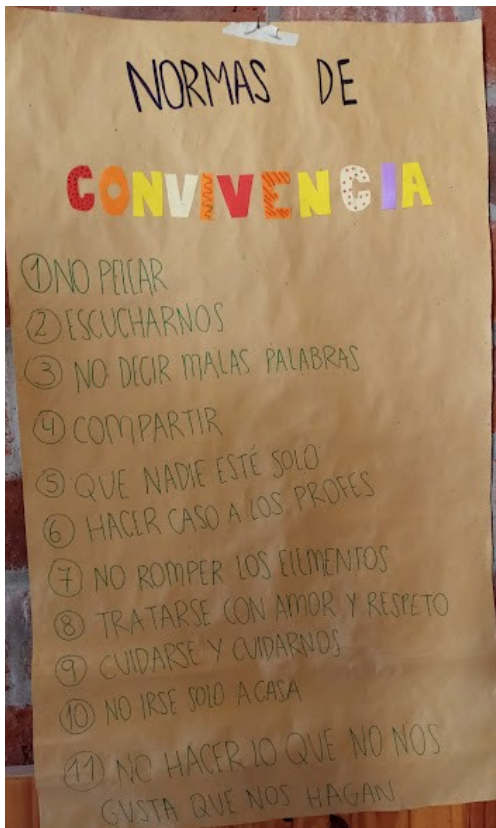 NORMAS DE
CONVIVENCIA
① NO PELEAR
② ESCUCHARNOS
③ NO DECIR MALAS PALABRAS
④ COMPARTIR
⑤ QUE NADIE ESTÉ SOLO
⑥ HACER CASO A LOS PROFES
⑦ NO ROMPER LOS ELEMENTOS
⑧ TRATARSE CON AMOR Y RESPETO
⑨ CUIDARSE Y CUIDARNOS
⑩ NO IRSE SOLO A CASA
⑪ NO HACER LO QUE NO NOS
GUSTA QUE NOS HAGAN.